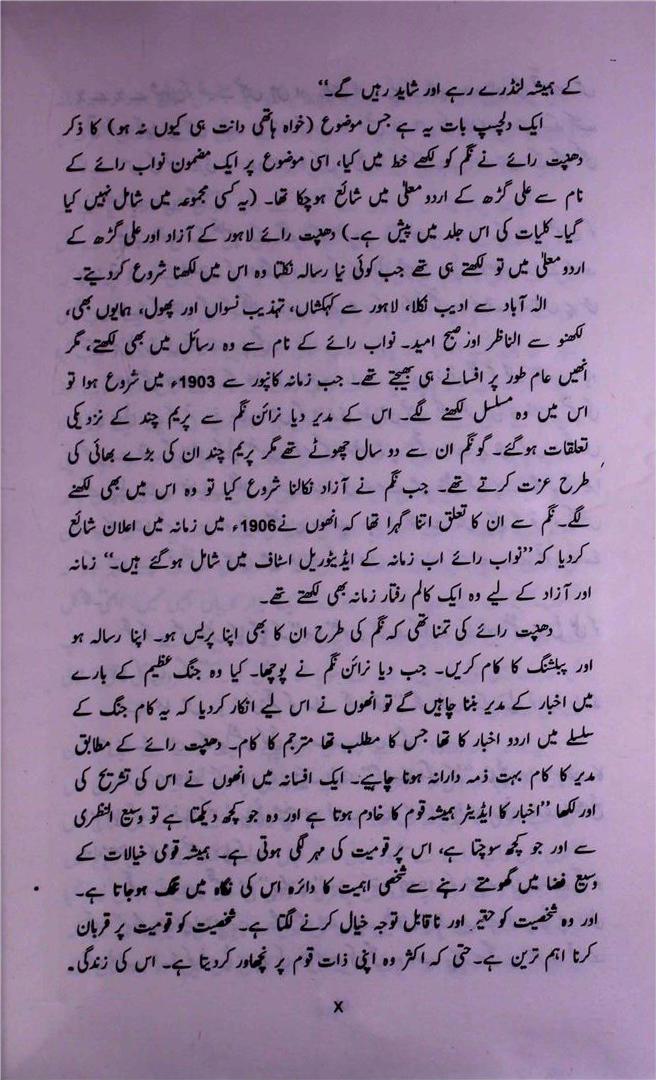 کے ہمیشہ لنڈرے رہے اور شاید رہیں گے۔‘‘
ایک دلچسپ بات یہ ہے جس موضوع (خواہ ہاتھی دانت ہی کیوں نہ ہو) کا ذکر
دھنپت رائے نے نگم کو لکھے خط میں کیا، اسی موضوع پر ایک مضمون نواب رائے کے
نام سے علی گڑھ کے اردو معلیٰ میں شائع ہوچکا تھا۔ (یہ کسی مجموعہ میں شامل نہیں کیا
گیا۔ کلیات کی اس جلد میں پیش ہے۔) دھنپت رائے لاہور کے آزاد اور علی گڑھ کے
اردو معلیٰ میں تو لکھتے ہی تھے جب کوئی نیا رسالہ نکلتا وہ اس میں لکھنا شروع کردیتے۔
الہ آباد سے ادیب نکلا، لاہور سے کہکشاں، تہذیب نسواں اور پھول، ہمایوں بھی،
لکھنو سے الناظر اور صبح امید۔ نواب رائے کے نام سے وہ رسائل میں بھی لکھتے، مگر
انھیں عام طور پر افسانے ہی بھیجتے تھے۔ جب زمانہ کانپور سے 1903ء میں شروع ہوا تو
اس میں وہ مسلسل لکھنے لگے۔ اس کے مدیر دیا نرائن نگم سے پریم چند کے نزدیکی
تعلقات ہوگئے۔ گو نگم ان سے دو سال چھوٹے تھے مگر پریم چند ان کی بڑے بھائی کی
طرح عزت کرتے تھے۔ جب نگم نے آزاد نکالنا شروع کیا تو وہ اس میں بھی لکھنے
لگے۔ نگم سے ان کا تعلق اتنا گہرا تھا کہ انھوں نے 1906ء میں زمانہ میں اعلان شائع
کردیا کہ ’’نواب رائے اب زمانہ کے ایڈیٹوریل اسٹاف میں شامل ہوگئے ہیں۔‘‘ زمانہ
اور آزاد کے لیے وہ ایک کالم رفتار زمانہ بھی لکھتے تھے۔
دھنپت رائے کی تمنا تھی کہ نگم کی طرح ان کا بھی اپنا پریس ہو۔ اپنا رسالہ ہو
اور پبلشنگ کا کام کریں۔ جب دیا نرائن نگم نے پوچھا۔ کیا وہ جنگ عظیم کے بارے
میں اخبار کے مدیر بننا چاہیں گے تو انھوں نے اس لیے انکار کردیا کہ یہ کام جنگ کے
سلسلے میں اردو اخبار کا تھا جس کا مطلب تھا مترجم کا کام۔ دھنپت رائے کے مطابق
مدیر کا کام بہت ذمہ دارانہ ہونا چاہیے۔ ایک افسانہ میں انھوں نے اس کی تشریح کی
اور لکھا ’’اخبار کا ایڈیٹر ہمیشہ قوم کا خادم ہوتا ہے اور وہ جو کچھ دیکھتا ہے تو وسیع النظری
سے اور جو کچھ سوچتا ہے، اس پر قومیت کی مہر لگی ہوتی ہے۔ ہمیشہ قومی خیالات کے
وسیع فضا میں گھومتے رہنے سے شخصی اہمیت کا دائرہ اس کی نگاہ میں تنگ ہوجاتا ہے۔
اور وہ شخصیت کو حقیر اور ناقابل توجہ خیال کرنے لگتا ہے۔ شخصیت کو قومیت پر قربان
کرنا اہم ترین ہے۔ حتی کہ اکثر وہ اپنی ذات قوم پر نچھاور کردیتا ہے۔ اس کی زندگی۔
X